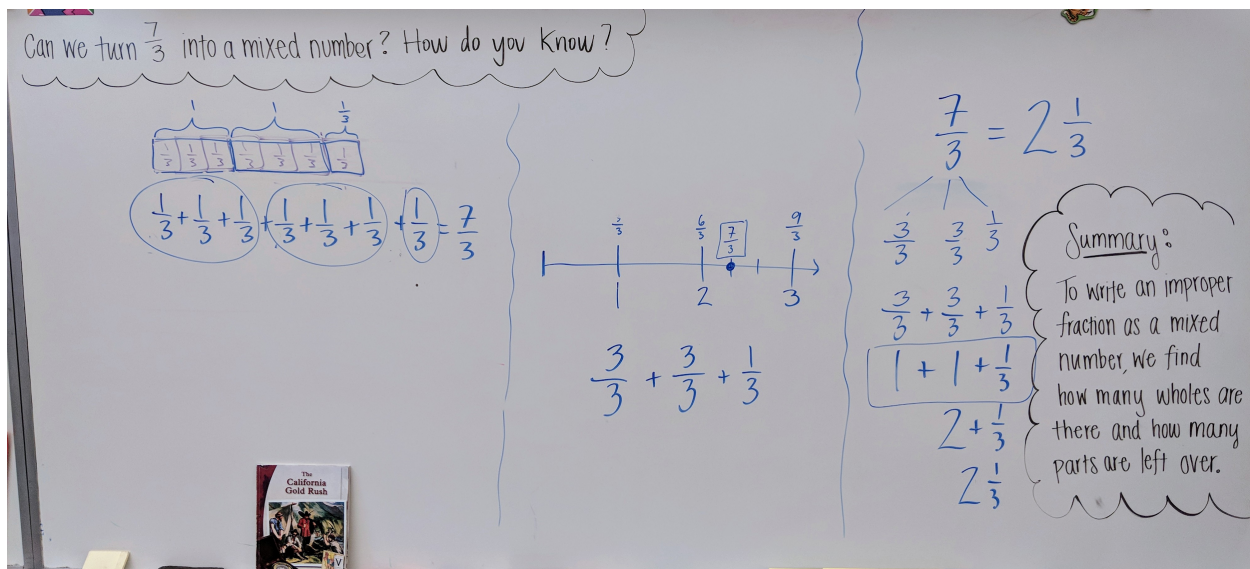 Can we turn 7/3 into a mixed number? How do you know?
1 1 1/3
1/3 1/3 1/3 1/3 1/3 1/3 1/3
1/3 + 1/3 + 1/3 + 1/3 + 1/3 + 1/3 + 1/3 = 7/3
3/3 6/3 7/3 9/3
1 2 3
3/3 + 3/3 + 1/3
7/3 = 2 1/3
3/3 3/3 1/3
3/3 + 3/3 + 1/3
1 + 1 + 1/3
2 + 1/3
2 1/3
Summary:
To write an improper
fraction as a mixed
number, we find
how many wholes are
there and how many
parts are left over.
The
California
Gold Rush
V